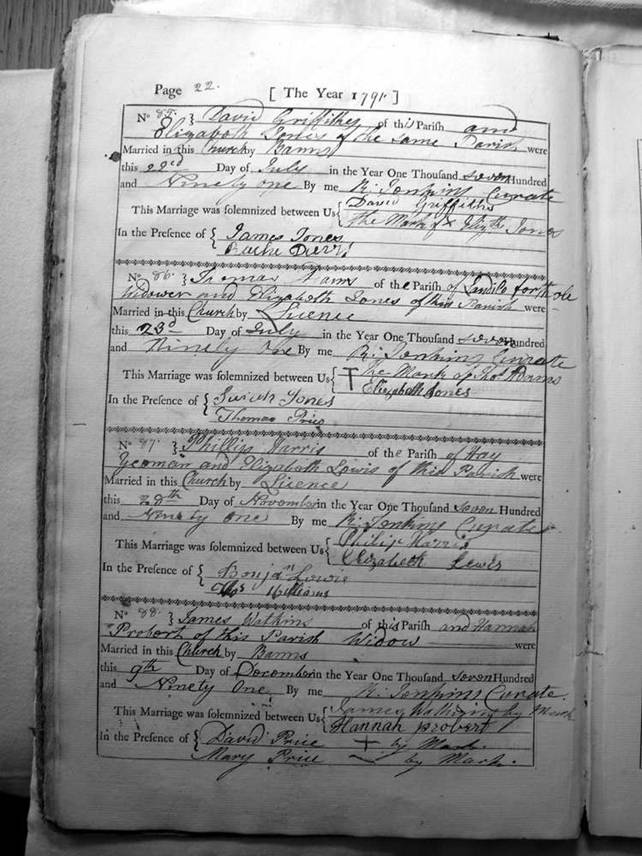 Page 22. [ The Year 1791 ]
No 85. } David Griffiths of this Parish and
Elizabeth Jones of the same Parish were
Married in this Church by Banns
this 22nd Day of July in the Year One Thousand seven Hundred
and Ninety one By me R: Jenkins Curate
This Marriage was solemnized between Us { David Griffiths
The Mark of X Elizth Jones
In the Presence of { James Jones
No 86. } Thomas Adams of the Parish of
Widower and Elizabeth Jones of this Parish were
Married in this Church by Licence
this 23d Day of July in the Year One Thousand seven Hundred
and Ninety one By me R: Jenkins Curate
This Marriage was solemnized between Us { The Mark of Thos Adams
Elizabeth Jones
In the Presence of { Jones
Thomas Price
No 87. } Phillip Harris of the Parish of Hay
Yeoman and Elizabeth Lewis of this Parish were
Married in this Church by Licence
this 28th Day of November in the Year One Thousand Seven Hundred
and Ninety one By me R: Jenkins Curate
This Marriage was solemnized between Us { Philip Harris
Elizabeth Lewis
In the Presence of { Benjn Lewis
Williams
No 88. } James Watkins of this Parish and Hannah
Probert of this Parish Widow were
Married in this Church by Banns
this 9th Day of December in the Year One Thousand seven Hundred
and Ninety One By me R: Jenkins Curate.
This Marriage was solemnized between Us { James Watkins by Mark
Hannah probert
In the Presence of { David Price + by Mark.
Mary Price — by Mark.